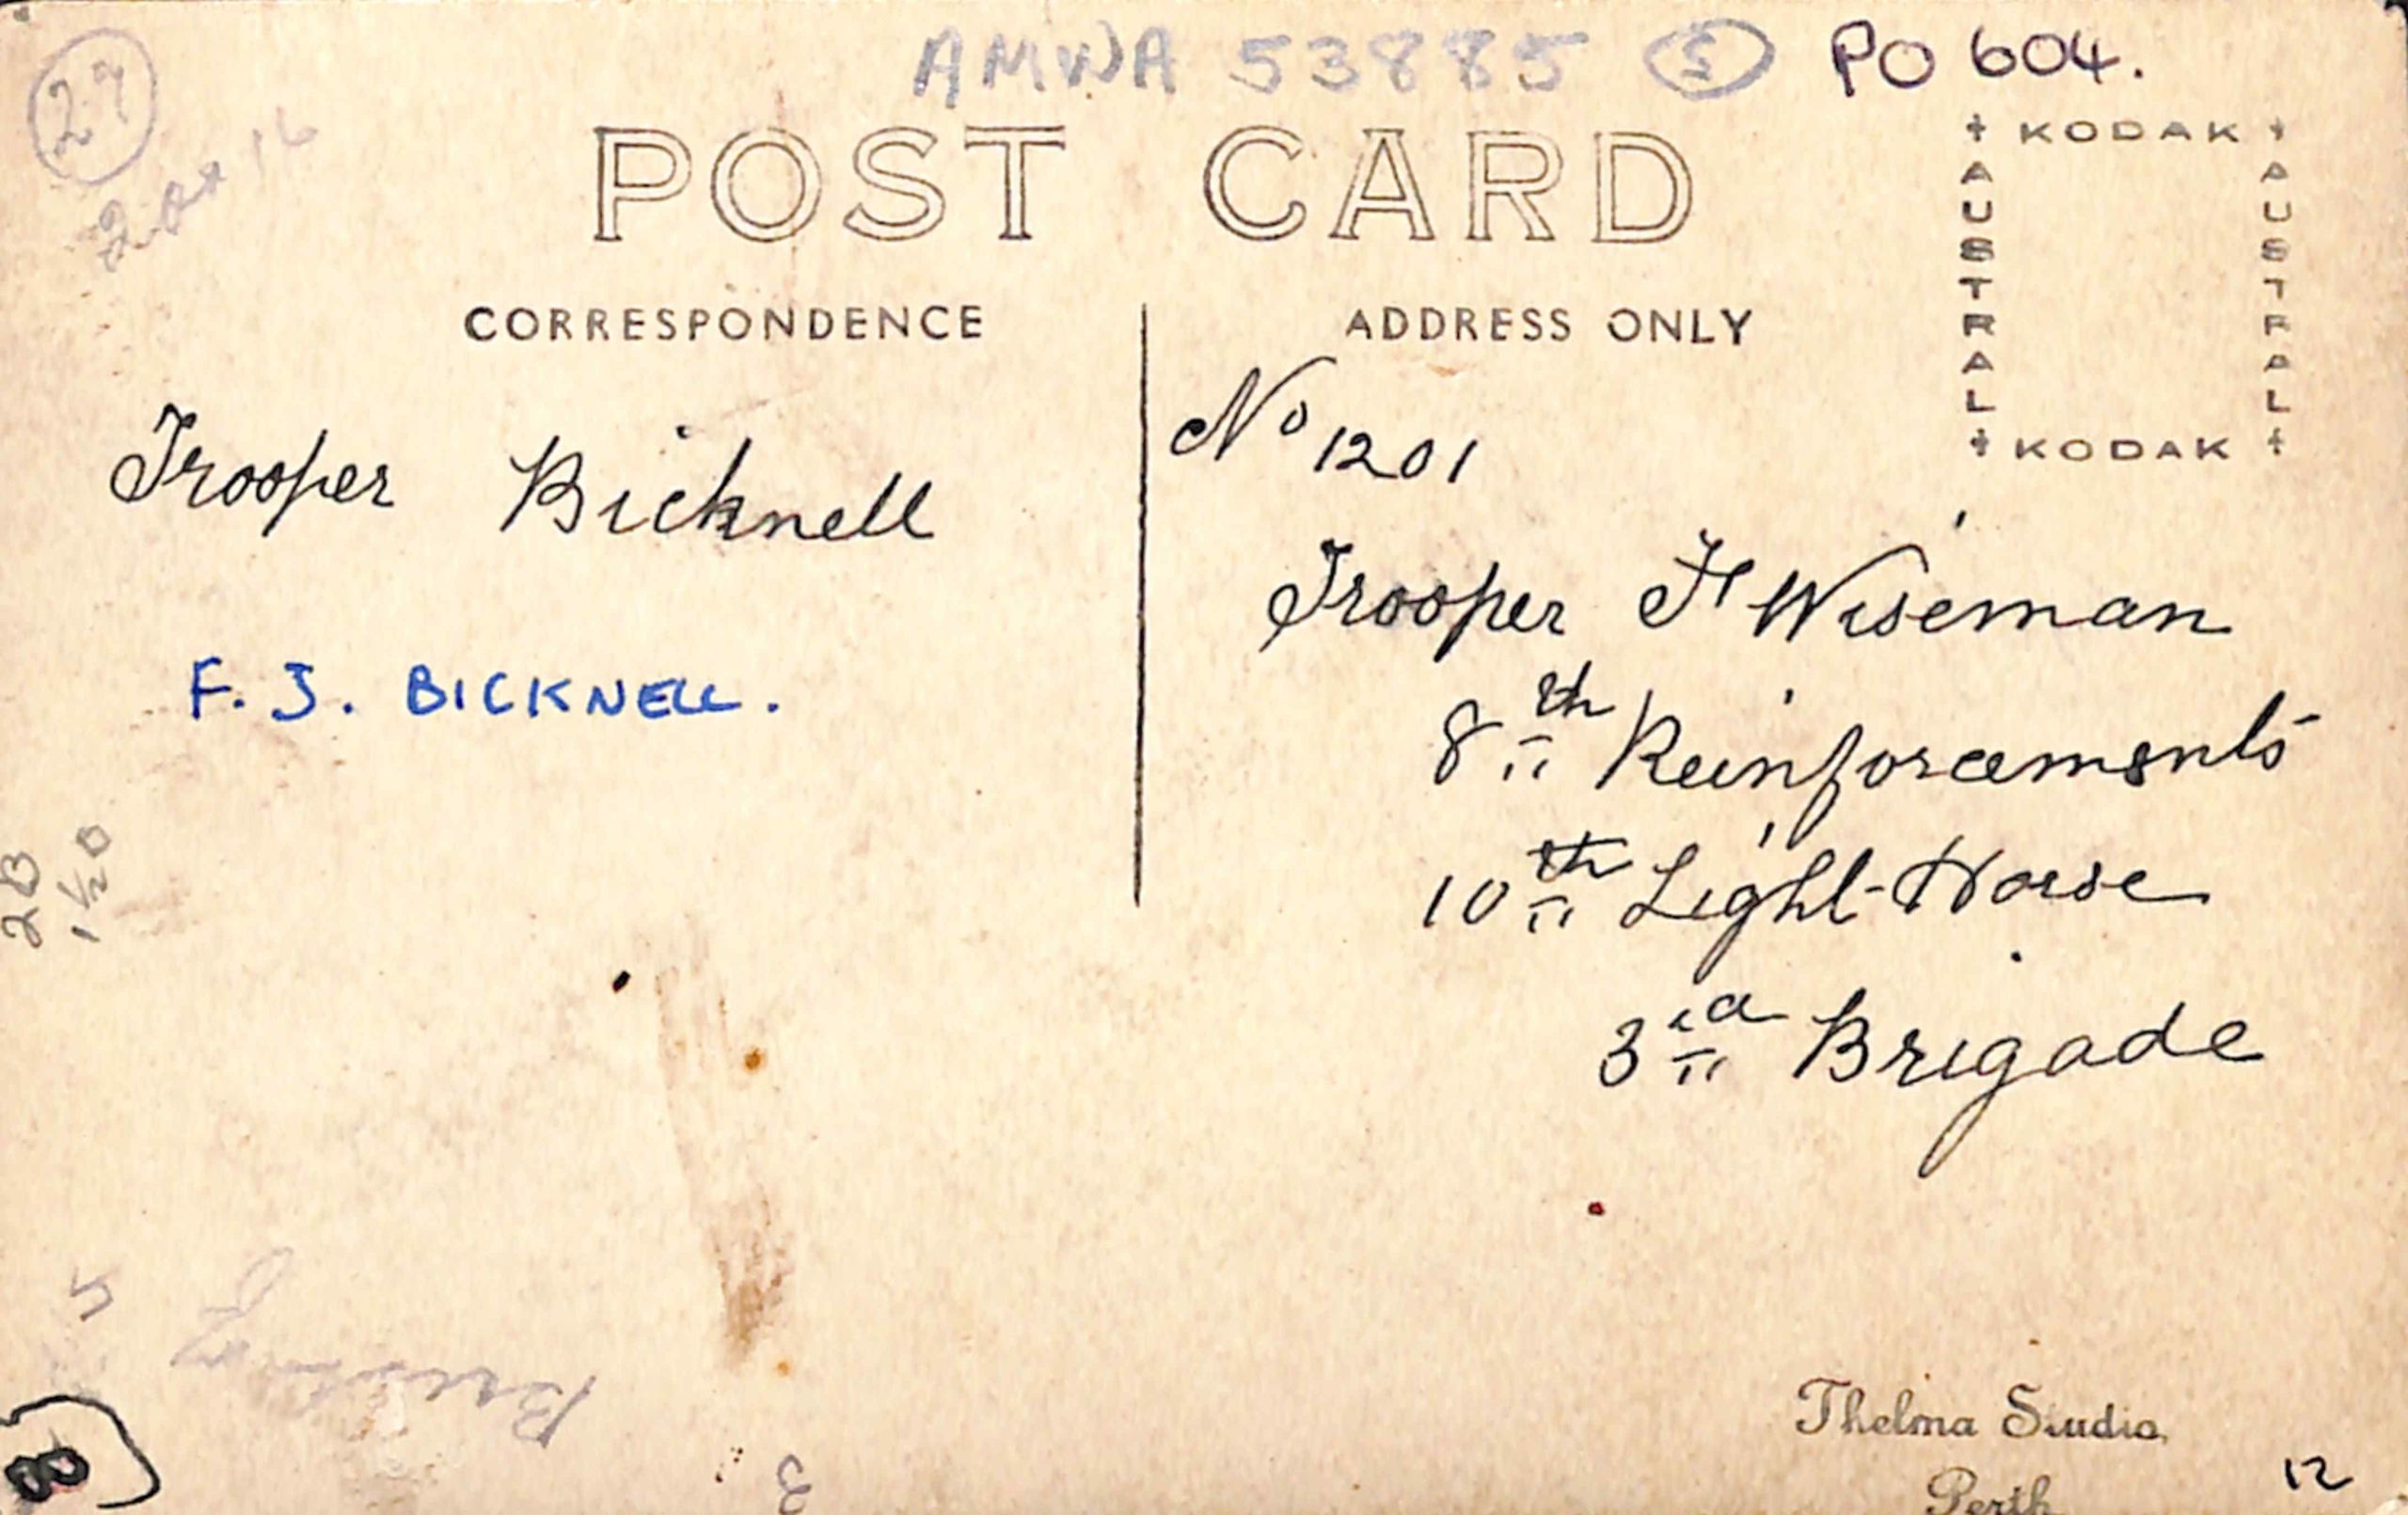 AMWA 53885 5 PO 604.
27
POST CARD
KODAK
AUSTRAL
AUSTRAL
KODAK
CORRESPONDENCE
ADDRESS ONLY
Trooper Bicknell
F. J. BICKNELL.
No 1201
Trooper F Wiseman
8th Reinforcements
10th Light Horse
3rd Brigade
2B
1 1/2 D
5
8
3
Thelma Studio
Perth
12